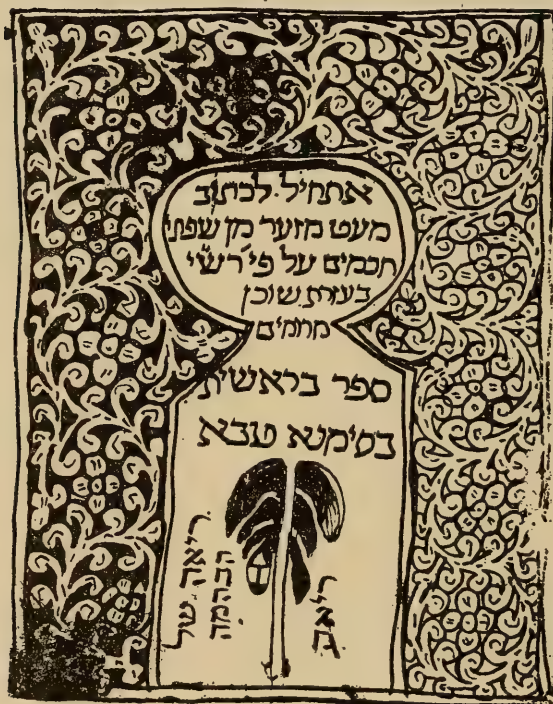 אתחיל לכתוב
מעט מזער מן שפתי
חכמים על פי׳ רש״י
בעזרת שוכן
מרומים
ספר בראשית
בסימנא טובא
ריאה של
הבהמה